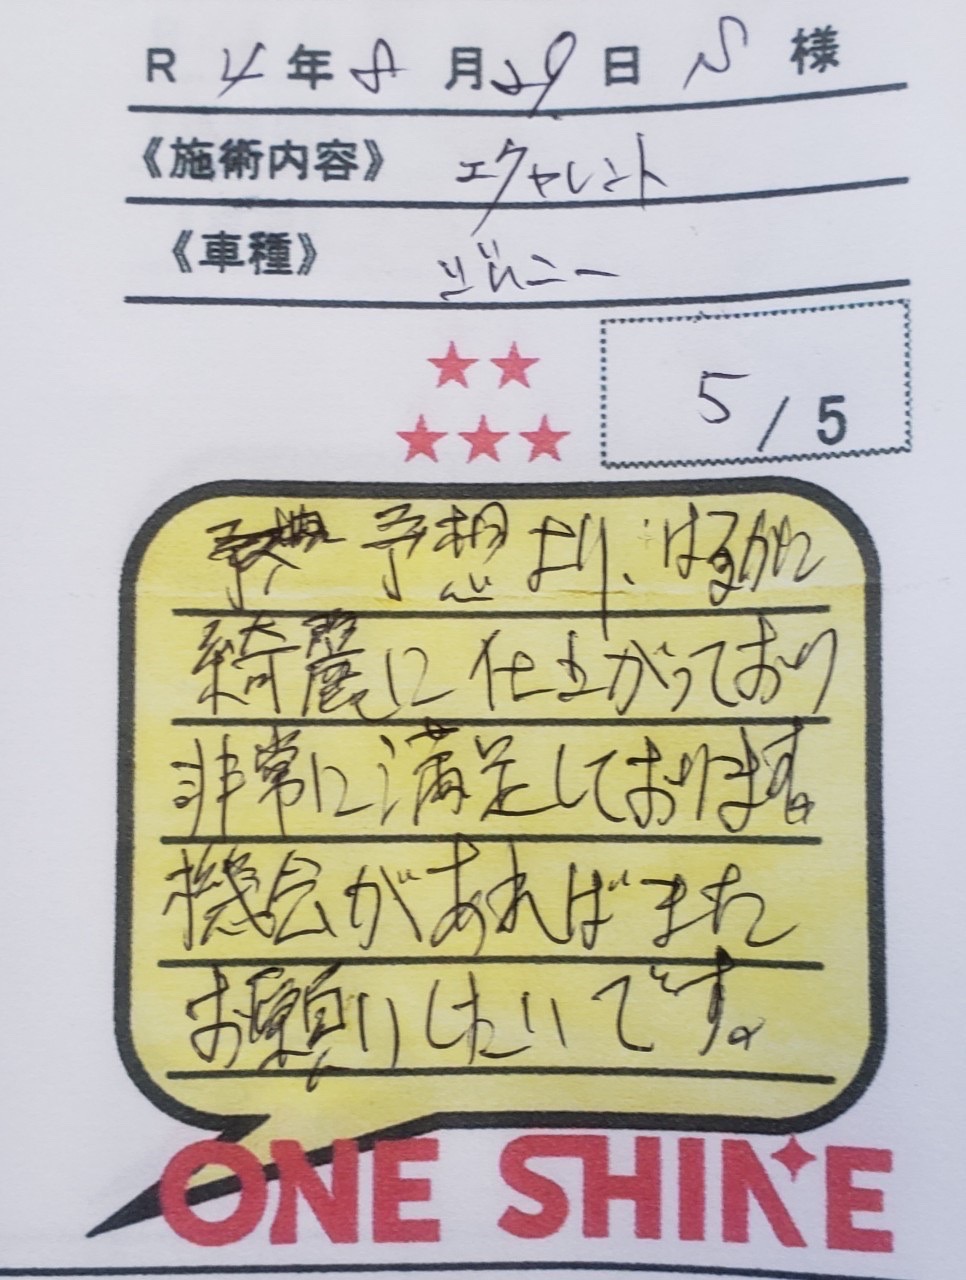 R 4年8月29日 S 様
《施術内容》 エクャレント
《車種》 ジムニー
5/5
予想より、はるかに
綺麗に仕上がっており
非常に満足しております。
機会があればまた
お願いしたいです。
ONE SHINE